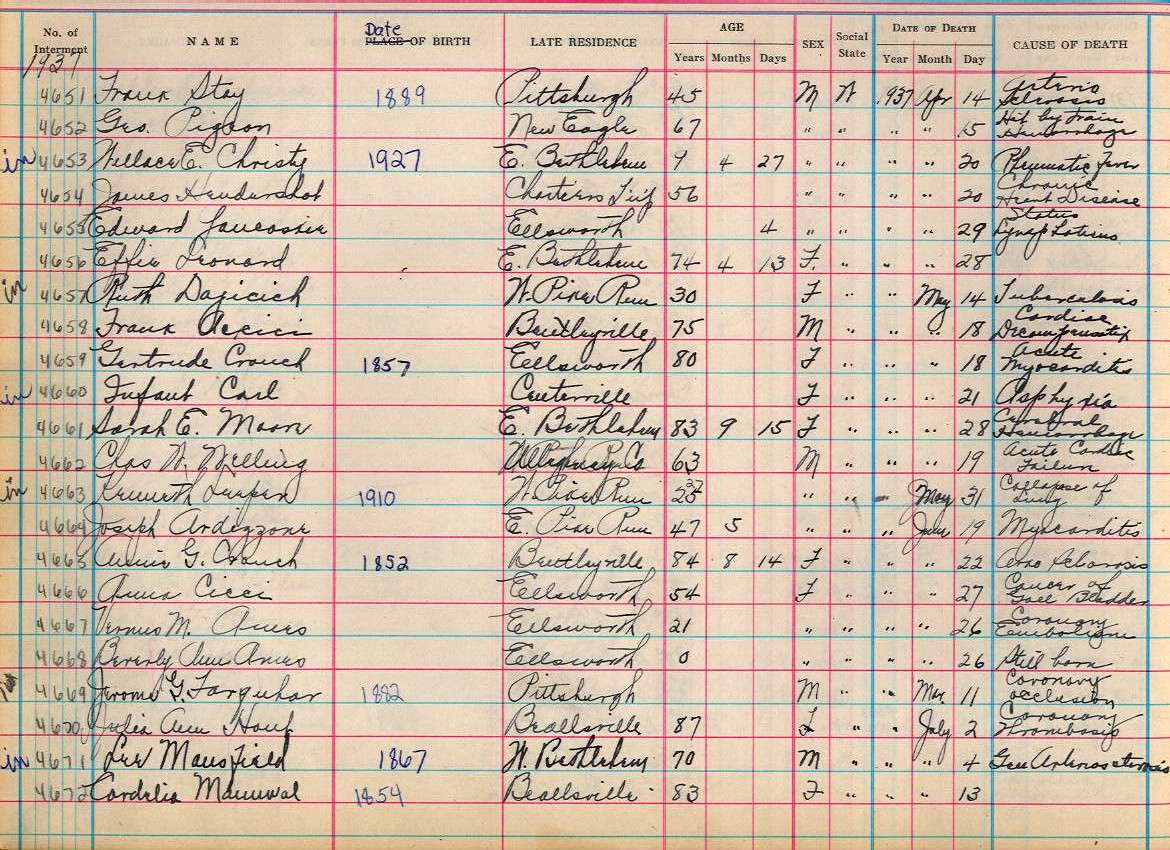 No. of Interment NAME Date PLACE OF BIRTH LATE RESIDENCE AGE SEX Social State DATE OF DEATH CAUSE OF DEATH
Years Months Days Year Month Day
1937
4651 Frank Stay 1889 Pittsburgh 45 M W 1937 Apr 14 Arterio Sclerosis
4652 Geo. Pigeon New Eagle 67 " " " " 15 Hit by Train Hemorrhage
in 4653 Wallace E. Christy 1927 E. Bethlehem 9 4 27 " " " " 20 Rheumatic Fever
4654 James Hendershot 56 " " " " 20 Chronic Heart Disease
4655 Edward Lancaster Ellsworth 4 " " " " 29 Status
4656 Effie Leonard E. Bethlehem 74 4 13 F. " " " 28
in 4657 Ruth W. Pike Run 30 F " " May 14 Tuberculosis
4658 Frank Bentleyville 75 M " " " 18 Cardiac
4659 Gertrude Crouch 1857 Ellsworth 80 F " " " 18 Acute Myocarditis
in 4660 Infant Carl Centerville F " " " 21 Asphyxia
4661 Sarah E. Moon E. Bethlehem 83 9 15 F " " " 28 Cerebral Hemorrhage
4662 Chas W. 63 M " " " 19 Acute Cardiac Failure
in 4663 Kenneth 1910 W. Pike Run 27 " " " May 31 Collapse of Lung
4664 Joseph Ardizzone E. Pike Run 47 5 " " " June 19 Myocarditis
4665 Annie G. Crouch 1852 Bentleyville 84 8 14 F " " " 22
4666 Anna Cicci Ellsworth 54 F " " " 27 Cancer of Gall Bladder
4667 M. Ames Ellsworth 21 " " " " 26 Coronary Embolism
4668 Beverly Ann Ames Ellsworth 0 " " " " 26 Still born
4669 Jerome G. Farquhar 1882 Pittsburgh M " " Mar. 11 Coronary occlusion
4670 Julia Ann Beallsville 87 F " " July 2 Coronary Thrombosis
in 4671 Lee Mansfield 1867 W. Bethlehem 70 M " " " 4 Gen
4672 Cordelia 1854 Beallsville 83 F " " " 13